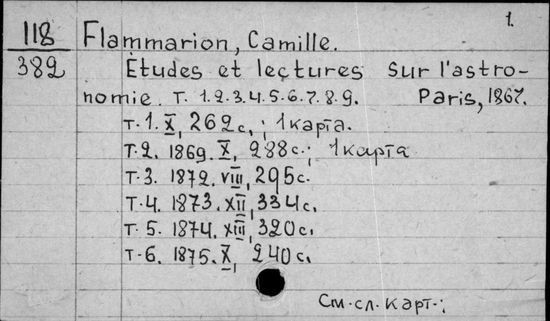 1.
118
389
Flammarion, Camille.
Études et lectures sur l'astro-
nomie. Т. 1.2.3.4.5.6.7.8.9. Paris, 1867.
т.1. X, 262с.; 1 карта.
т.2. 1869. X, 288с.; 1 карта
т.3. 1872. VIII, 295с.
т.4. 1873. XII, 334с.
т.5. 1874. XIII, 320с.
т.6. 1875. X, 240с.
См.сл.карт.;